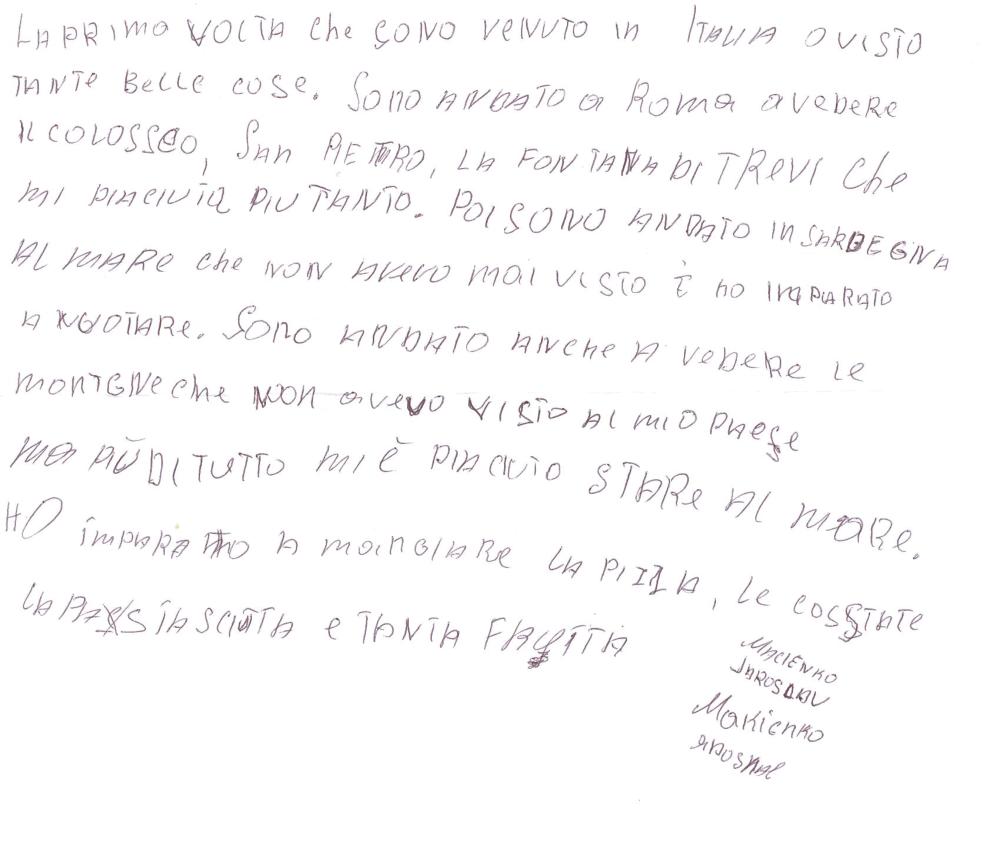 LA PRIMA VOLTA che SONO VENUTO in ITALIA O VISTO
TANTE BELLE COSE. SONO ANDATO a ROMA a VEDERE
IL COLOSSEO, SAN PIETRO, LA FONTANA DI TREVI Che
MI PIACIUTA PIU TANTO. POI SONO ANDATO IN SARDEGNA
AL MARE che NON AVEVO MAI VISTO È HO IMPARATO
A NUOTARE. SONO ANDATO ANCHE A VEDERE LE
MONTGNE che NON aveVO VISTO AL MIO PAESE
MA PIÙ DI TUTTO MI È PIACIUTO STARE AL MARE.
HO IMPARATO A MANGIARE LA PIZZA, LE COSSTATE
LA PASSTASCIUTTA e TANTA FRUTTA
MACIENKO
JAROSLAV
Makienko